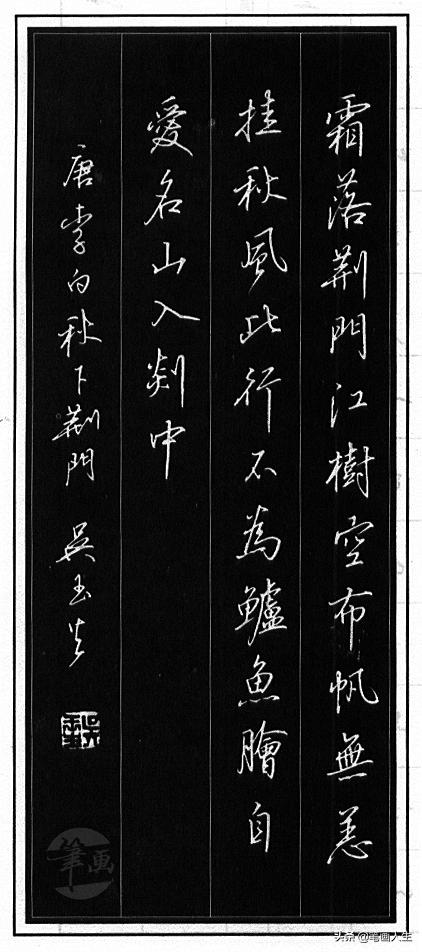 霜落荆門江樹空布帆無恙
挂秋風此行不為鱸魚膾自
愛名山入剡中
唐李白秋下荆門 吳玉生
筆画
头条@笔画人生